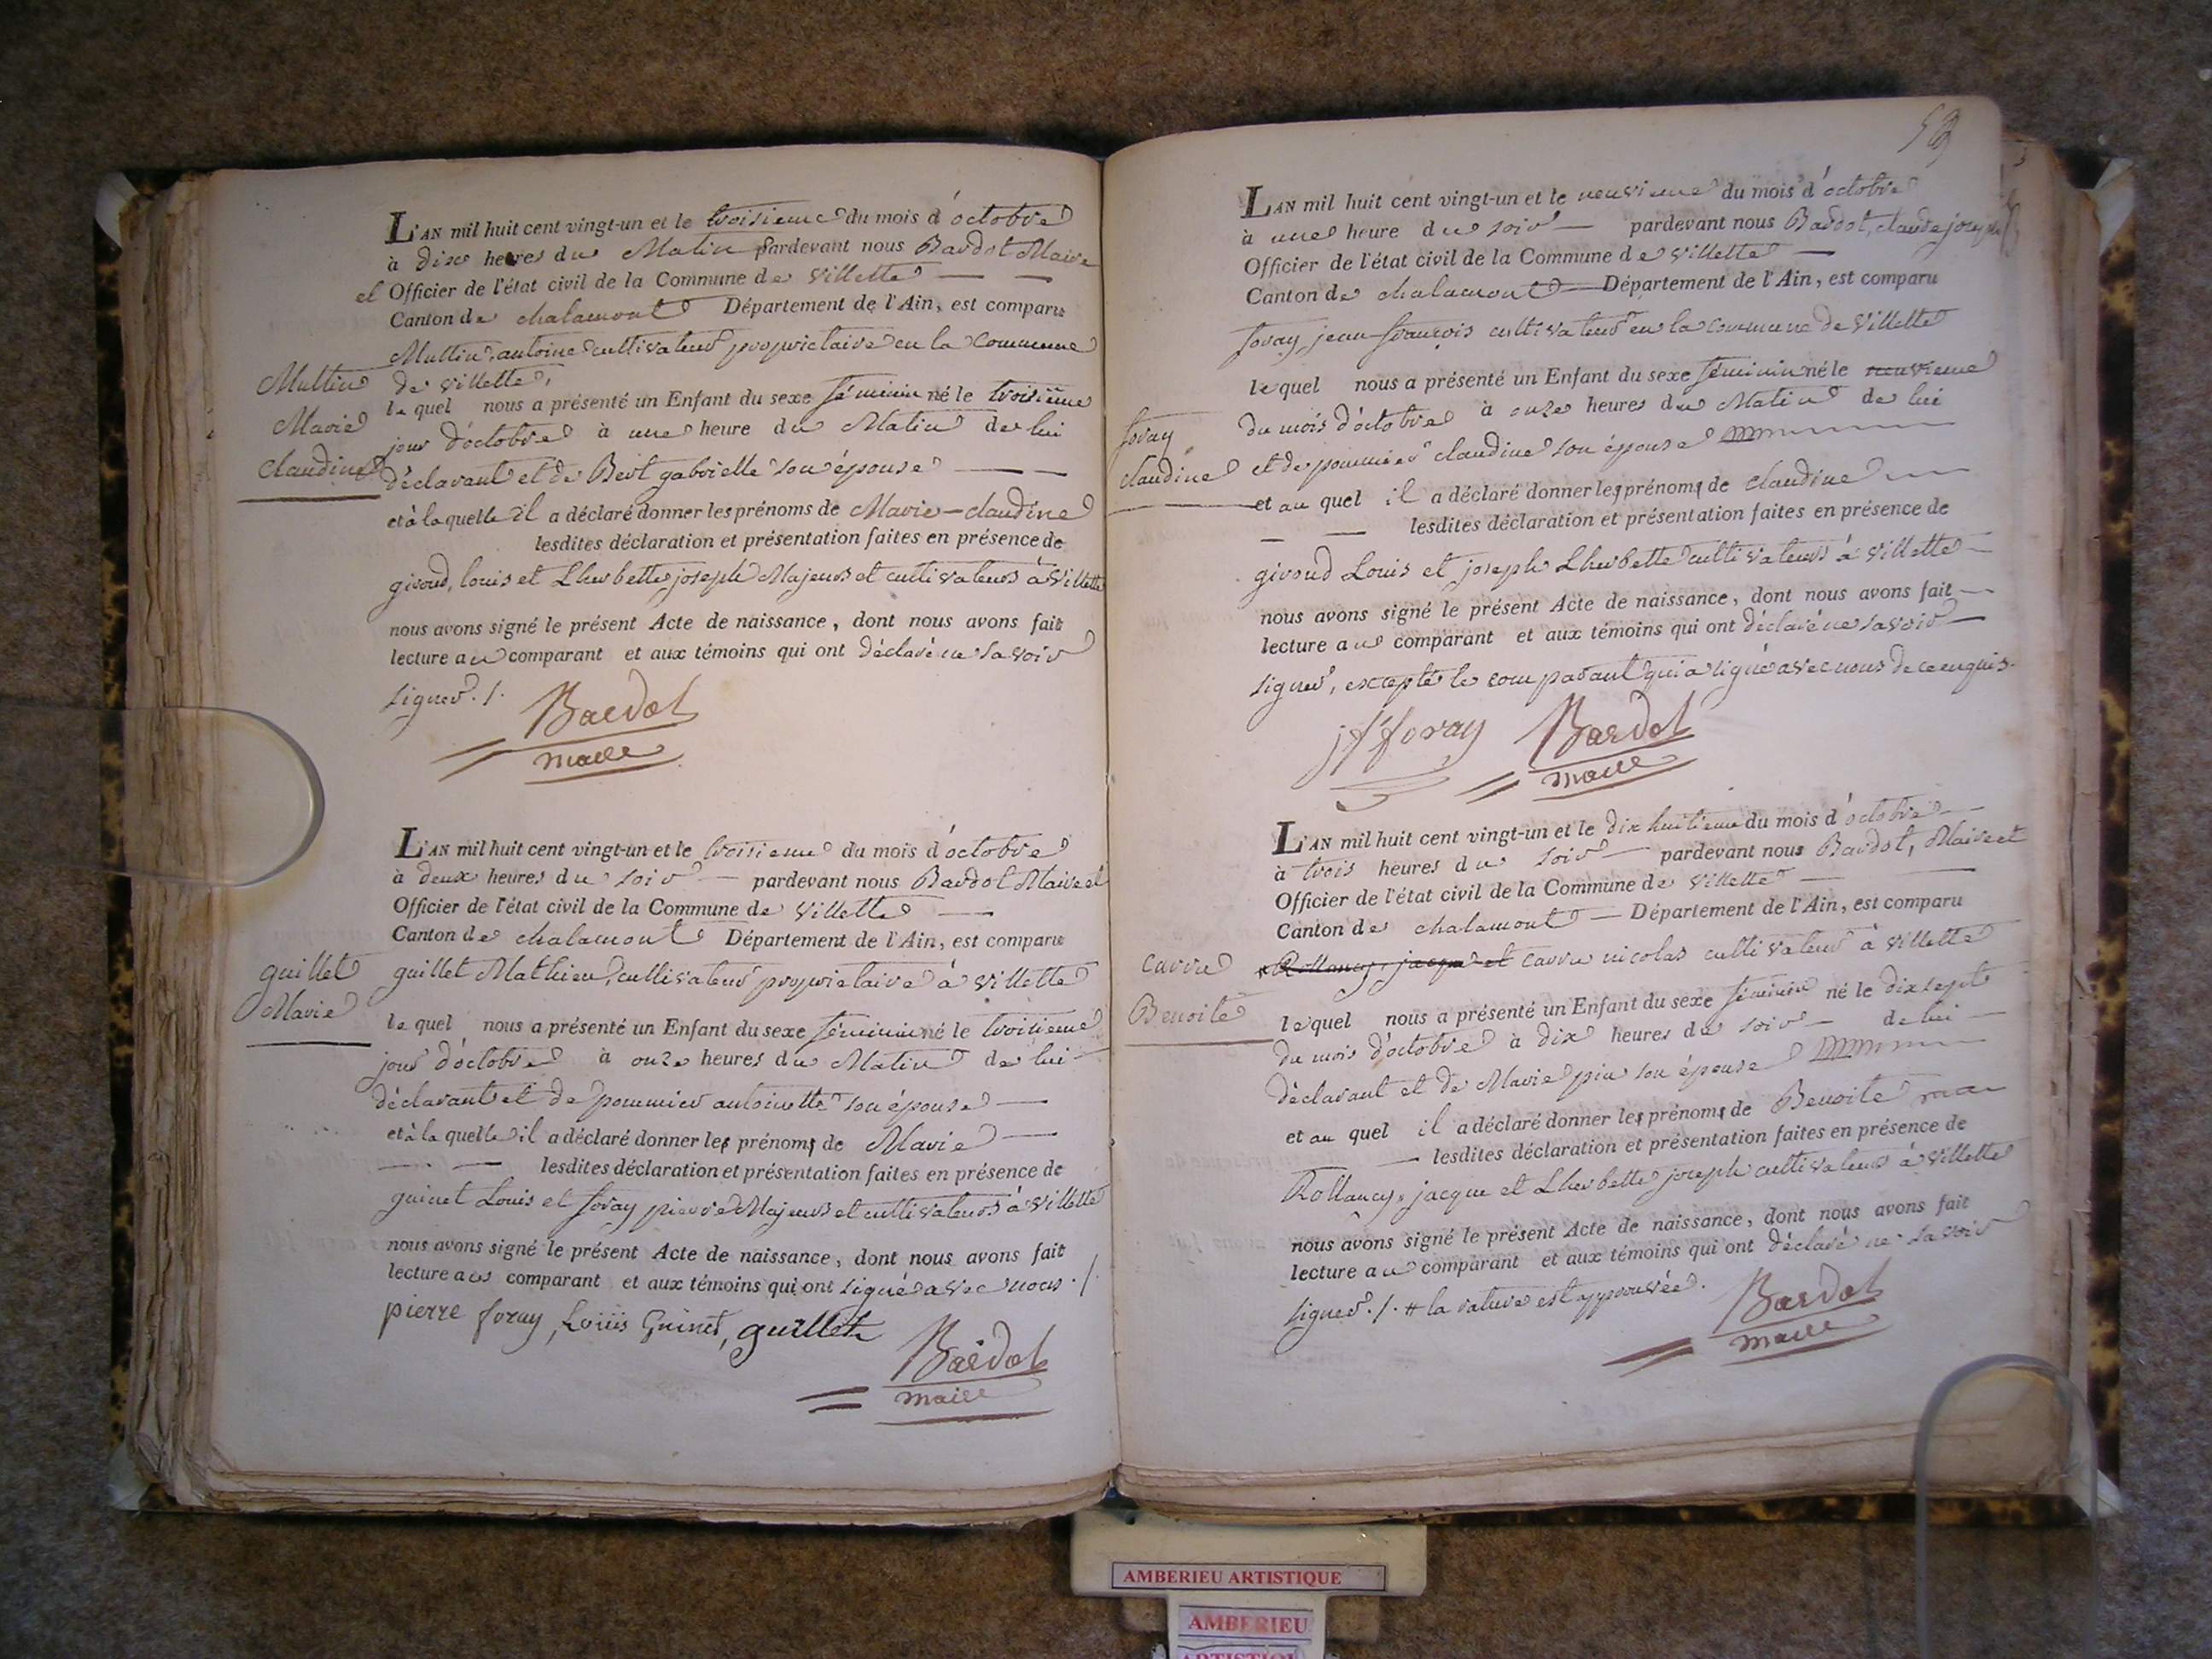 L'AN mil huit cent vingt-un et le troisieme du mois d'octobre
à dix heures du Matin pardevant nous Bardot Maire
et Officier de l'état civil de la Commune de Villette
Canton de chalamont Département de l'Ain, est comparu
Multin, antoine cultivateur propriétaire en la Commune
de Villette,
Multin
Marie
Claudine
le quel nous a présenté un Enfant du sexe féminin né le troisième
jour d'octobre à une heure du Matin de lui
déclarant et de Bert gabrielle son épouse
et à la quelle il a déclaré donner les prénoms de Marie-claudine
lesdites déclaration et présentation faites en présence de
giroud, louis et Lherbette joseph Majeurs et cultivateurs à Villette
nous avons signé le présent Acte de naissance, dont nous avons fait
lecture au comparant et aux témoins qui ont déclaré ne savoir
signer./.
Bardot
maire
L'AN mil huit cent vingt-un et le troisieme du mois d'octobre
à deux heures du soir pardevant nous Bardot Maire et
Officier de l'état civil de la Commune de Villette
Canton de chalamont Département de l'Ain, est comparu
guillet Mathieu, cultivateur propriétaire à Villette
guillet
Marie
le quel nous a présenté un Enfant du sexe féminin né le troisieme
jour d'octobre à onze heures du Matin de lui
déclarant et de pommier antoinette son épouse
et à la quelle il a déclaré donner les prénoms de Marie
lesdites déclaration et présentation faites en présence de
guinet Louis et foray pierre Majeurs et cultivateurs à Villette
nous avons signé le présent Acte de naissance, dont nous avons fait
lecture aux comparant et aux témoins qui ont signé avec nous./.
pierre foray, Louis Guinet, guillet
Bardot
maire
53
L'AN mil huit cent vingt-un et le neuvieme du mois d'octobre
à une heure du soir pardevant nous Bardot, claude joseph
Officier de l'état civil de la Commune de Villette
Canton de chalamont Département de l'Ain, est comparu
foray, jean françois cultivateur en la commune de Villette
le quel nous a présenté un Enfant du sexe féminin né le neuvieme
du mois d'octobre à onze heures du Matin de lui
foray
claudine
et de pommier claudine son épouse
et au quel il a déclaré donner les prénoms de claudine
lesdites déclaration et présentation faites en présence de
giroud Louis et joseph Lherbette cultivateurs à Villette
nous avons signé le présent Acte de naissance, dont nous avons fait
lecture au comparant et aux témoins qui ont déclaré ne savoir
signer, excepté le comparant qui a signé avec nous de ce enquis.
jf foray Bardot
maire
L'AN mil huit cent vingt-un et le dix huitieme du mois d'octobre
à trois heures du soir pardevant nous Bardot, Maire et
Officier de l'état civil de la Commune de Villette
Canton de chalamont Département de l'Ain, est comparu
Rollancy, jacque et carru nicolas cultivateur à Villette
carru
Benoite
le quel nous a présenté un Enfant du sexe féminin né le dix sept
du mois d'octobre à dix heures du soir de lui
déclarant et de Marie piu son épouse
et au quel il a déclaré donner les prénoms de Benoite
lesdites déclaration et présentation faites en présence de
Rollancy, jacque et Lherbette joseph cultivateurs à Villette
nous avons signé le présent Acte de naissance, dont nous avons fait
lecture au comparant et aux témoins qui ont déclaré ne savoir
signer./. # la rature est approuvée.
Bardot
maire
AMBERIEU ARTISTIQUE
AMBERIEU
ARTISTIQUE